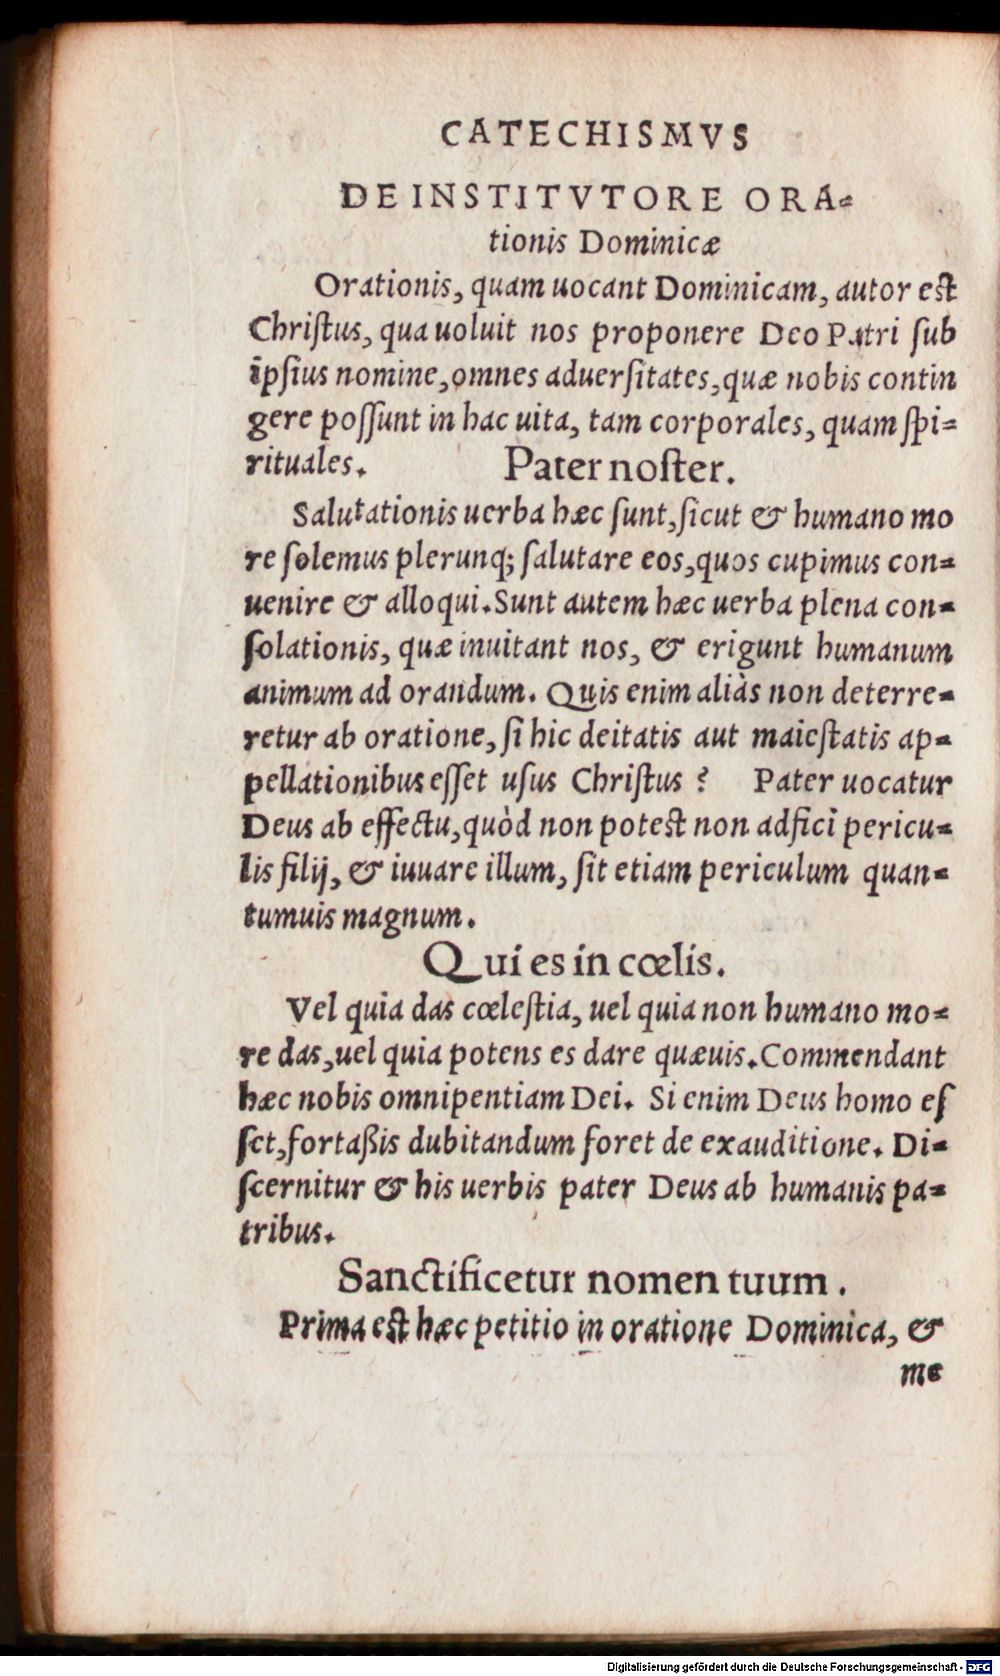 CATECHISMVS
DE INSTITVTORE ORA-
tionis Dominicæ
Orationis, quam uocant Dominicam, autor est
Chriſtus, qua uoluit nos proponere Deo Patri ſub
ipſius nomine, omnes aduerſitates, quæ nobis contin
gere poſſunt in hac uita, tam corporales, quam ſpi-
rituales. Pater noſter.
Salutationis uerba hæc ſunt, ſicut & humano mo
re ſolemus plerunq; ſalutare eos, quos cupimus con-
uenire & alloqui. Sunt autem hæc uerba plena con-
ſolationis, quæ inuitant nos, & erigunt humanum
animum ad orandum. Quis enim aliàs non deterre-
retur ab oratione, ſi hic deitatis aut maieſtatis ap-
pellationibus eſſet uſus Chriſtus ? Pater uocatur
Deus ab effectu, quòd non potest non adfici pericu-
lis filij, & iuuare illum, ſit etiam periculum quan-
tumuis magnum.
Qui es in cœlis.
Vel quia das cœleſtia, uel quia non humano mo-
re das, uel quia potens es dare quæuis. Commendant
hæc nobis omnipentiam Dei. Si enim Deus homo eſ
ſet, fortaßis dubitandum foret de exauditione. Di-
ſcernitur & his uerbis pater Deus ab humanis pa-
tribus.
Sanctificetur nomen tuum.
Prima est hæc petitio in oratione Dominica, &
me
Digitalisierung gefördert durch die Deutsche Forschungsgemeinschaft - DFG